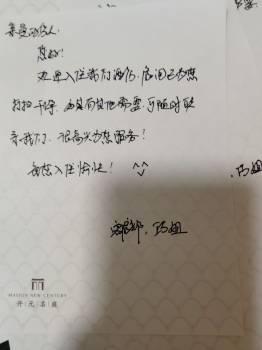 亲爱的客人:
您好!
欢迎入住我们酒店,房间已为您
打扫干净,如果有其他需要,可随时联
系我们,很高兴为您服务!
祝您入住愉快! ^^
冯姐
MAISON NEW CENTURY
开元名庭